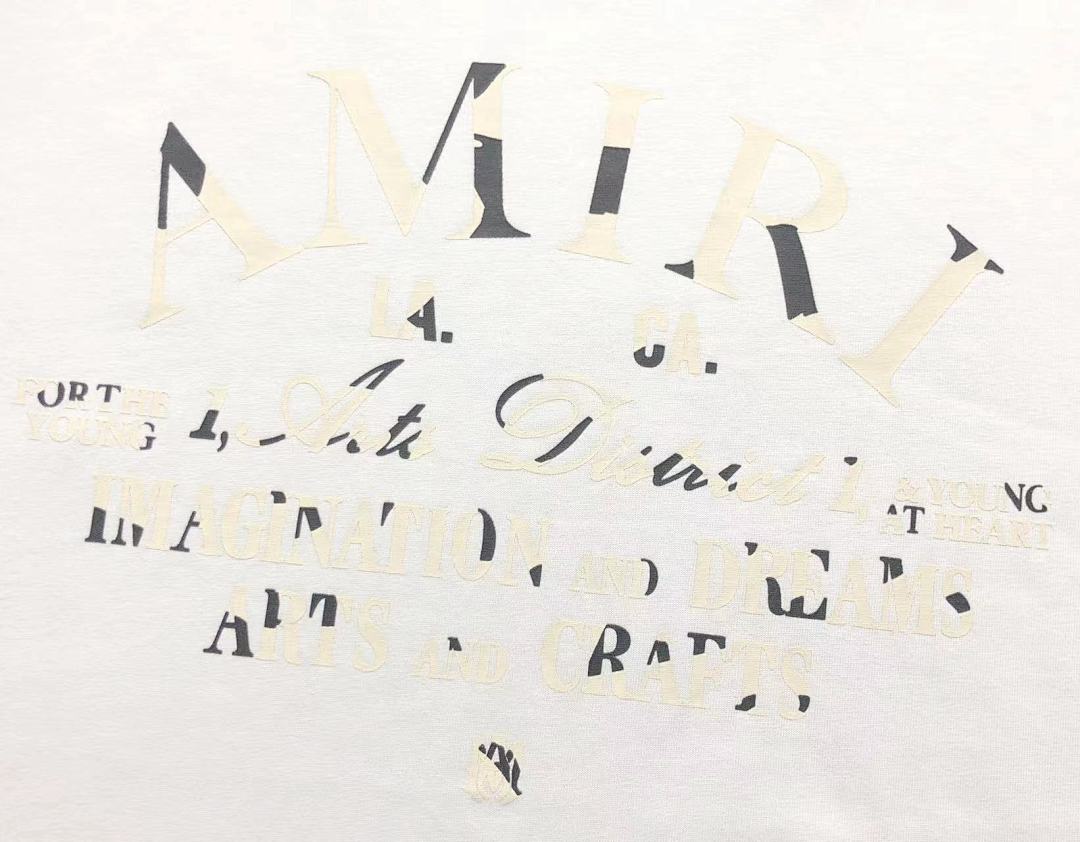 AMIRI
LA. CA.
FOR THE YOUNG 1, Arts District 1, & YOUNG AT HEART
IMAGINATION AND DREAMS
ARTS AND CRAFTS